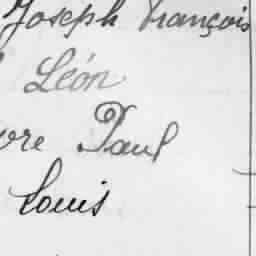 Joseph François
Léon
Paul
Louis